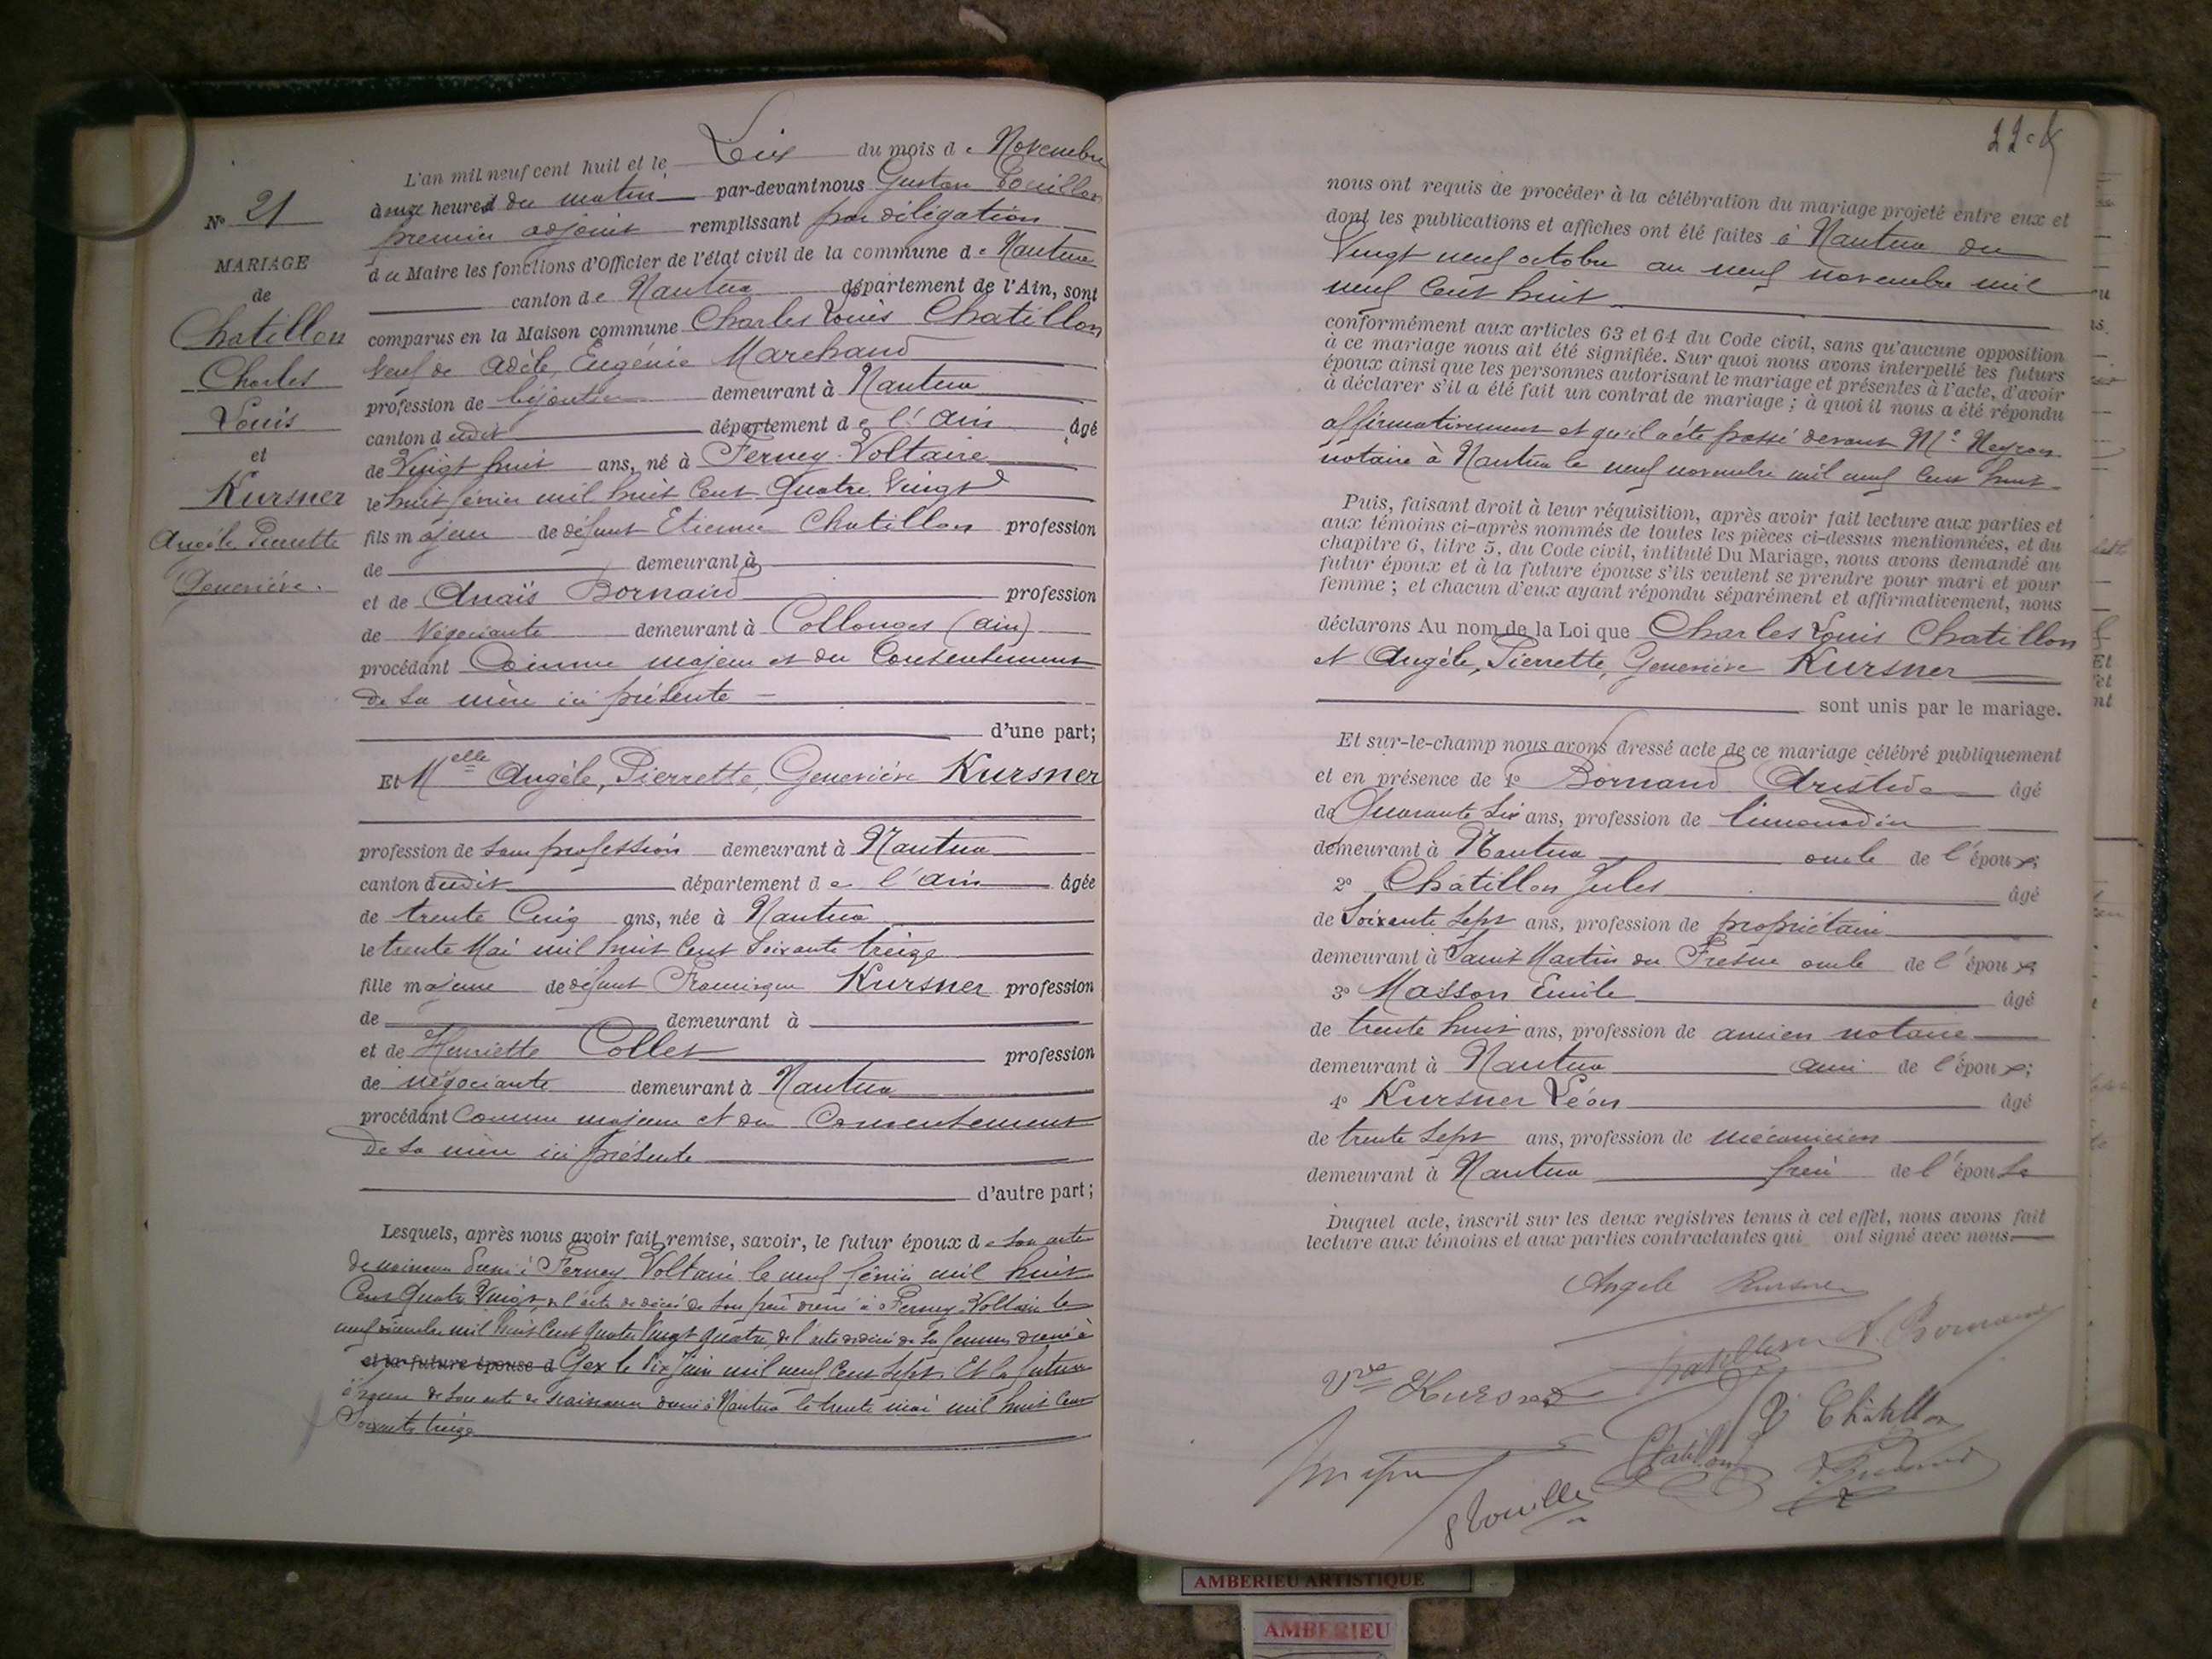 N° 21
MARIAGE
de
Chatillon
Charles
Louis
et
Kursner
Angèle Pierrette
Geneviève.
L'an mil neuf cent huit et le Dix du mois de Novembre
à onze heures du matin par-devant nous Gustave
premier adjoint remplissant par délégation
du Maire les fonctions d'Officier de l'état civil de la commune de Nantua
canton de Nantua département de l'Ain, sont
comparus en la Maison commune Charles Louis Chatillon
Veuf de Adèle, Eugénie Marchand
profession de bijoutier demeurant à Nantua
canton dudit département de l'Ain âgé
de Vingt huit ans, né à Ferney-Voltaire
le huit février mil huit Cent Quatre Vingt
fils majeur de défunt Etienne Chatillon profession
de demeurant à
et de Anaïs Bornand profession
de Négociante demeurant à Collonges (Ain)
procédant Comme majeur et du Consentement
de sa mère ici présente
d'une part;
Et Melle Angèle, Pierrette, Geneviève Kursner
profession de sans profession demeurant à Nantua
canton dudit département de l'Ain âgée
de trente Cinq ans, née à Nantua
le trente Mai mil huit Cent Soixante treize
fille majeure de défunt Kursner profession
de demeurant à
et de Henriette Collet profession
de négociante demeurant à Nantua
procédant Comme majeure et du Consentement
de sa mère ici présente
d'autre part;
Lesquels, après nous avoir fait remise, savoir, le futur époux de son acte
de naissance dressé à Ferney Voltaire le neuf février mil huit
Cent Quatre Vingt, de l'acte de décès de son père dressé à Ferney-Voltaire le
neuf mil huit Cent Quatre Vingt quatre, de l'acte de décès de sa femme dressé à
et la future épouse d Gex le Dix Juin mil neuf Cent Sept. Et la future
épouse de son acte de naissance dressé à Nantua le trente mai mil huit Cent
Soixante treize
nous ont requis de procéder à la célébration du mariage projeté entre eux et
dont les publications et affiches ont été faites à Nantua du
Vingt neuf octobre au neuf novembre mil
neuf Cent huit
conformément aux articles 63 et 64 du Code civil, sans qu'aucune opposition
à ce mariage nous ait été signifiée. Sur quoi nous avons interpellé les futurs
époux ainsi que les personnes autorisant le mariage et présentes à l'acte, d'avoir
à déclarer s'il a été fait un contrat de mariage; à quoi il nous a été répondu
affirmativement et qu'il a été passé devant Me Neyron
notaire à Nantua le neuf novembre mil neuf Cent huit
Puis, faisant droit à leur réquisition, après avoir fait lecture aux parties et
aux témoins ci-après nommés de toutes les pièces ci-dessus mentionnées, et du
chapitre 6, titre 5, du Code civil, intitulé Du Mariage, nous avons demandé au
futur époux et à la future épouse s'ils veulent se prendre pour mari et pour
femme; et chacun d'eux ayant répondu séparément et affirmativement, nous
déclarons Au nom de la Loi que Charles Louis Chatillon
et Angèle, Pierrette, Geneviève Kursner
sont unis par le mariage.
Et sur-le-champ nous avons dressé acte de ce mariage célébré publiquement
et en présence de 1° Bornand Aristide âgé
de Quarante Six ans, profession de limonadier
demeurant à Nantua oncle de l'époux;
2° Châtillon Jules âgé
de Soixante Sept ans, profession de propriétaire
demeurant à Saint Martin du Fresne oncle de l'époux;
3° Masson Emile âgé
de trente huit ans, profession de ancien notaire
demeurant à Nantua ami de l'époux;
4° Kursner Léon âgé
de trente Sept ans, profession de mécanicien
demeurant à Nantua frère de l'épouse
Duquel acte, inscrit sur les deux registres tenus à cet effet, nous avons fait
lecture aux témoins et aux parties contractantes qui ont signé avec nous.
Angele Kursner
Chatillon A. Bornand
Vve Kursner
J. Châtillon
Chatillon
AMBERIEU ARTISTIQUE
AMBERIEU